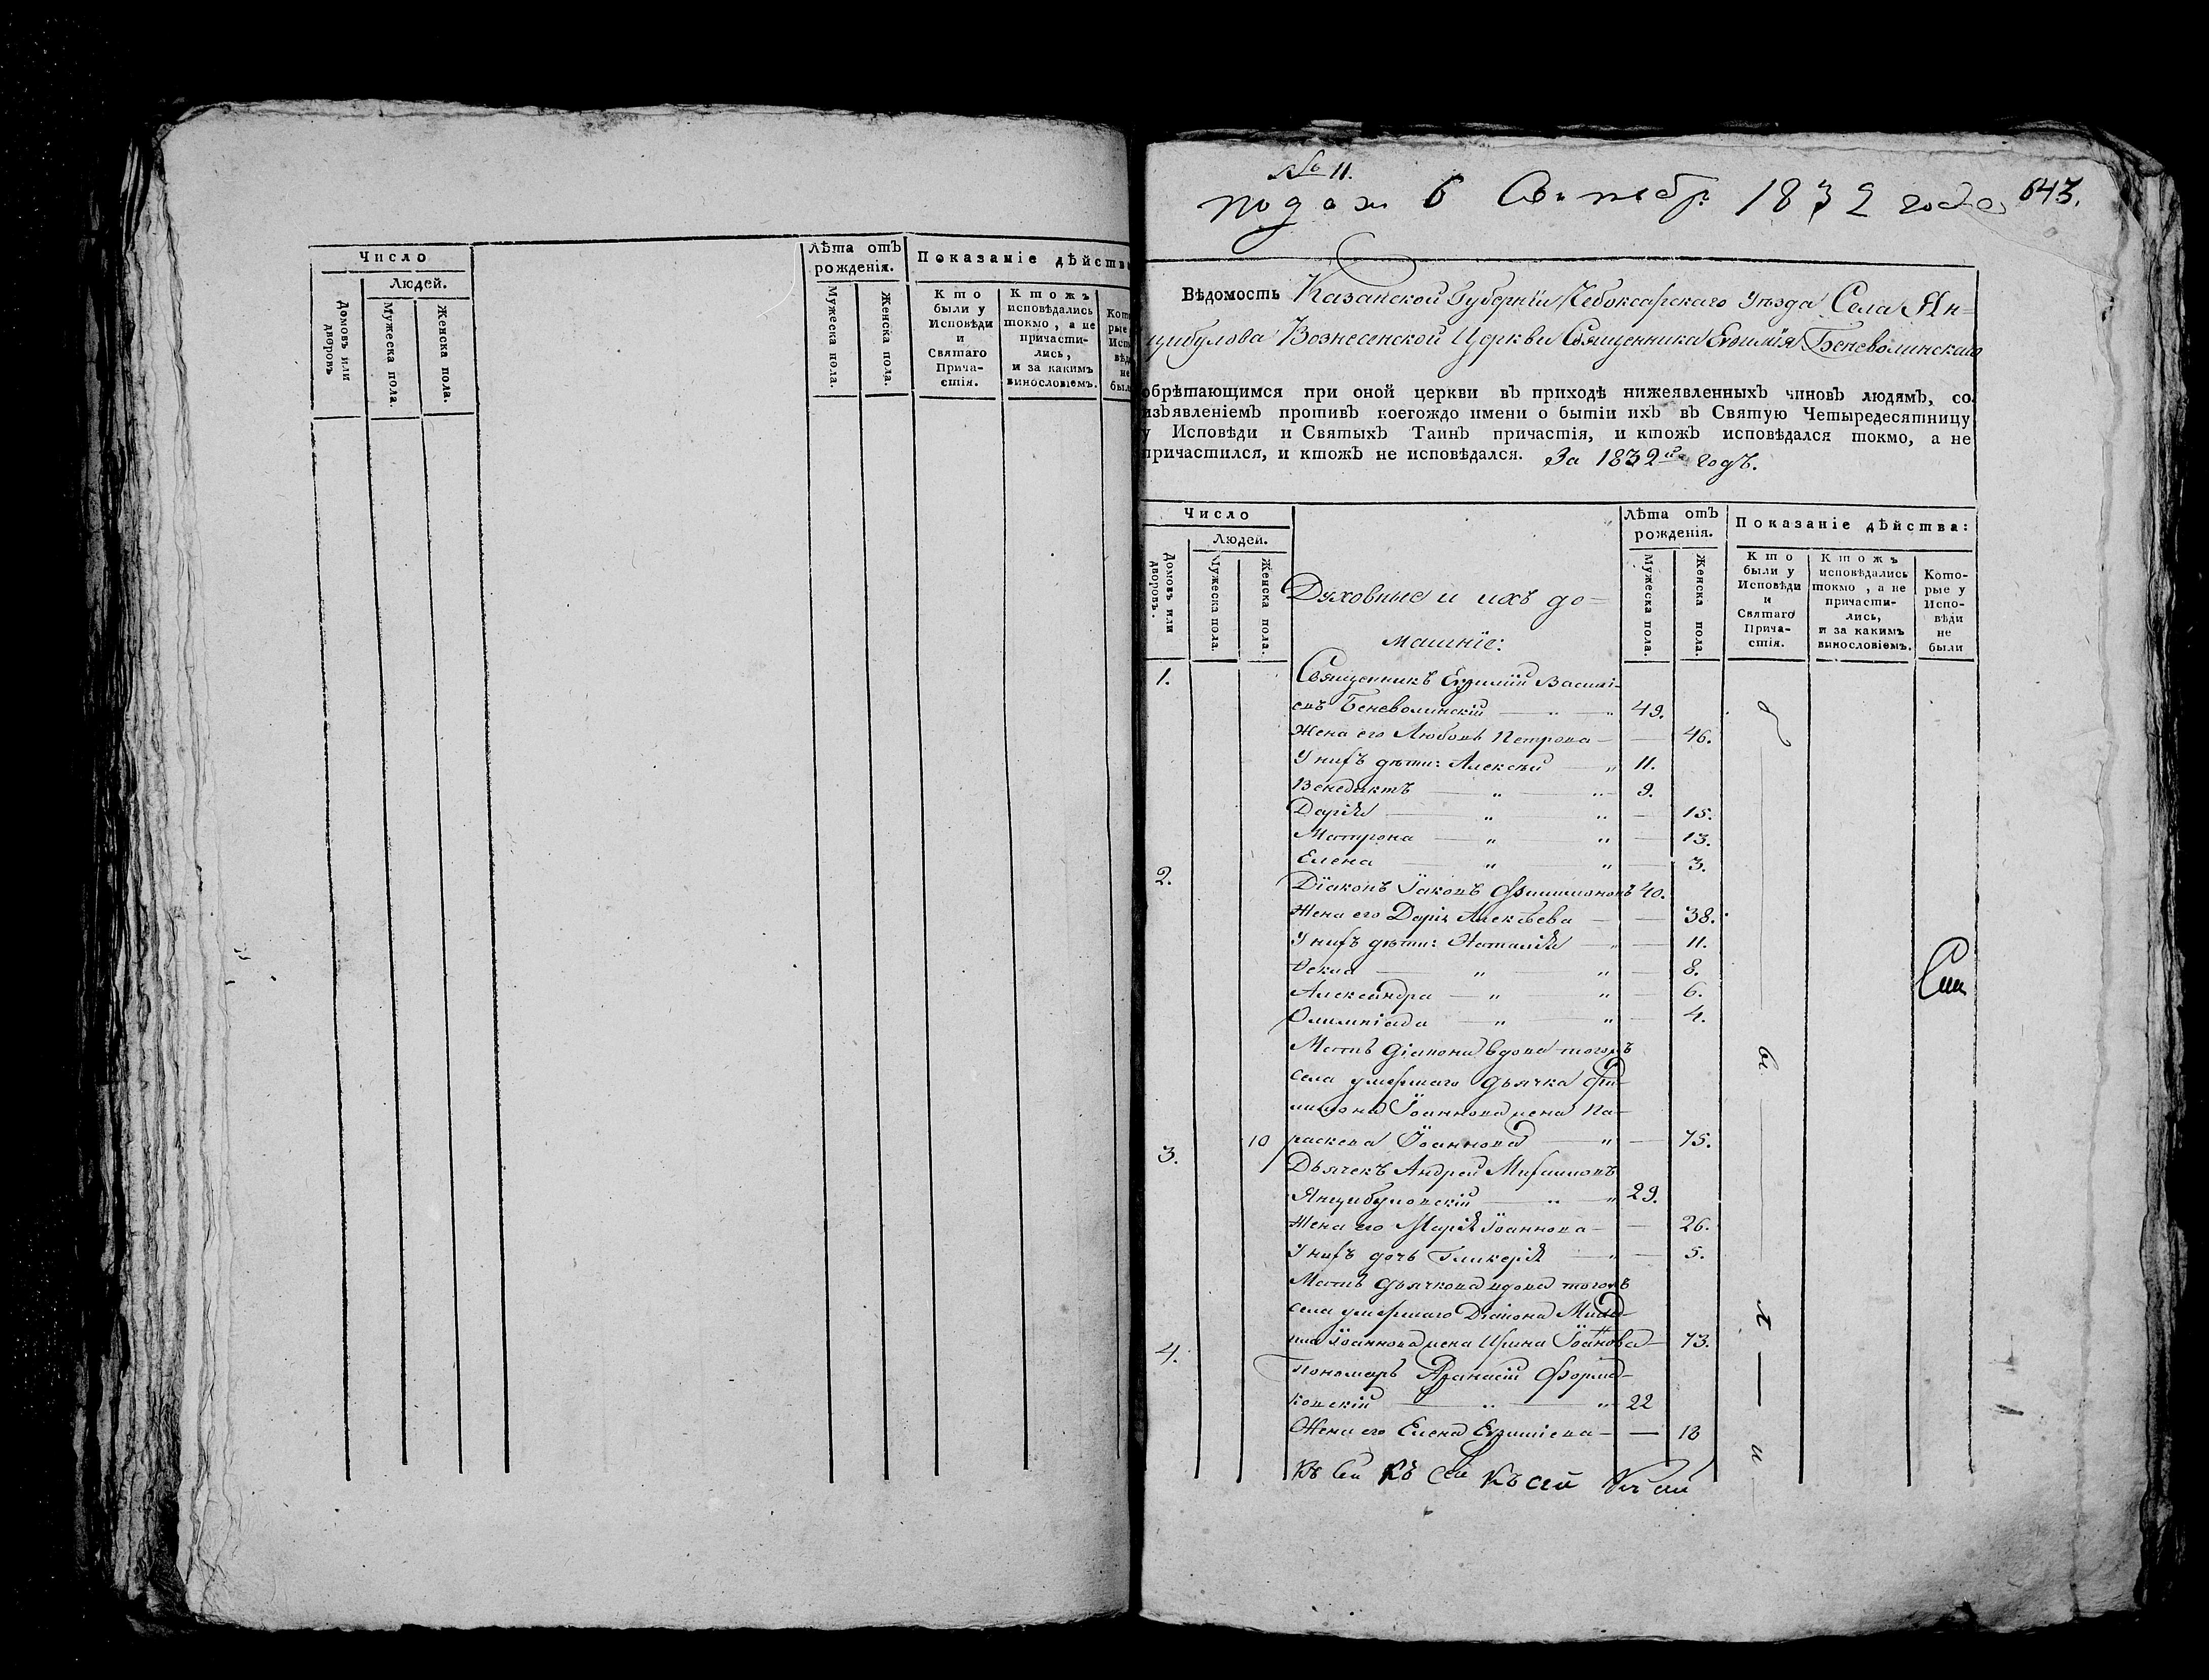 Число
Людей.
Домовъ или дворовъ
Мужеска пола.
Женска пола.
Лѣта отъ рожденія.
Мужеска пола.
Женска пола.
Показаніе дѣйства
Кто были у Исповѣди и Святаго Причастія.
Ктожъ исповѣдались токмо, а не причастились, и за какимъ винословіемъ.
№ 11.
6 1832 года
643.
Вѣдомость Казанской Губерніи Чебоксарскаго Уѣзда Села Ян=
цибулова Вознесенской Церкви Священника Евѳимія Беневолинскаго
обрѣтающимся при оной церкви въ приходѣ нижеявленныхъ чиновъ людямъ, со
изъявленіемъ противъ коегождо имени о бытіи ихъ въ Святую Четыредесятницу
у Исповѣди и Святыхъ Таинъ причастія, и ктожъ исповѣдался токмо, а не
причастился, и ктожъ не исповѣдался. За 1832й годъ.
Число
Людей.
Домовъ или дворовъ.
Мужеска пола.
Женска пола.
Духовные и ихъ до=
машніе:
Лѣта отъ рожденія.
Мужеска пола.
Женска пола.
Показаніе дѣйства:
Кто были у Исповѣди и Святаго Причастія.
Ктожъ исповѣдались токмо, а не причастились, и за какимъ винословіемъ.
Которые у Исповѣди не были
1. Священникъ Евѳимій Василі-
евъ Беневолинскій — „ — „ 49.
Жена его Любовь Петрова — — 46.
У нихъ дѣти: Алексѣй — „ 11.
Венедиктъ — „ — „ 9.
Дарія — „ „ — 15.
Матрона — „ „ — 13.
Елена — „ „ — 3.
2. Діаконъ Іаковъ Филимоновъ 40.
Жена его Дарія Алексѣева — — 38.
У нихъ дѣти: Наталія — „ — 11.
Ѳекла — „ „ — 8.
Александра — „ „ — 6.
Олимпіада — „ — „ — 4.
Мать діакона вдова тогожъ
села умершаго дьячка Фи-
лимона Іоаннова жена Па-
10 раскева Іоаннова — „ — 75.
3. Дьячекъ Андрей Михайловъ
Янцибуловскій — „ — „ 29.
Жена его Марія Іоаннова — — 26.
У нихъ дочь Гликерія — „ — 5.
Мать дьячкова вдова тогожъ
села умершаго Діакона Михаи-
ла Іоаннова жена Ирина Іоаннова — 73.
4. Пономарь Аѳанасій Форма-
ковскій — „ — „ 22
Жена его Елена Евѳиміева — — 18
Къ сей Къ сей Къ сей Къ сей